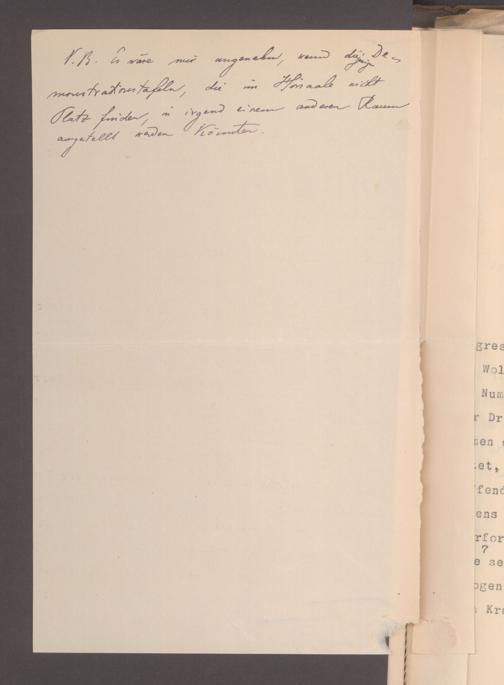 N.B. Es wäre mir angenehm, wenn diejenig De-
monstrationstafeln, die im Hörsaale nicht
Platz finden, in irgend einem anderen Raum
angestellt werden könnten.
gres
Wol
Num
r Dr
sen
et,
fend
ens
rfor
?
e se
ogen
Kra